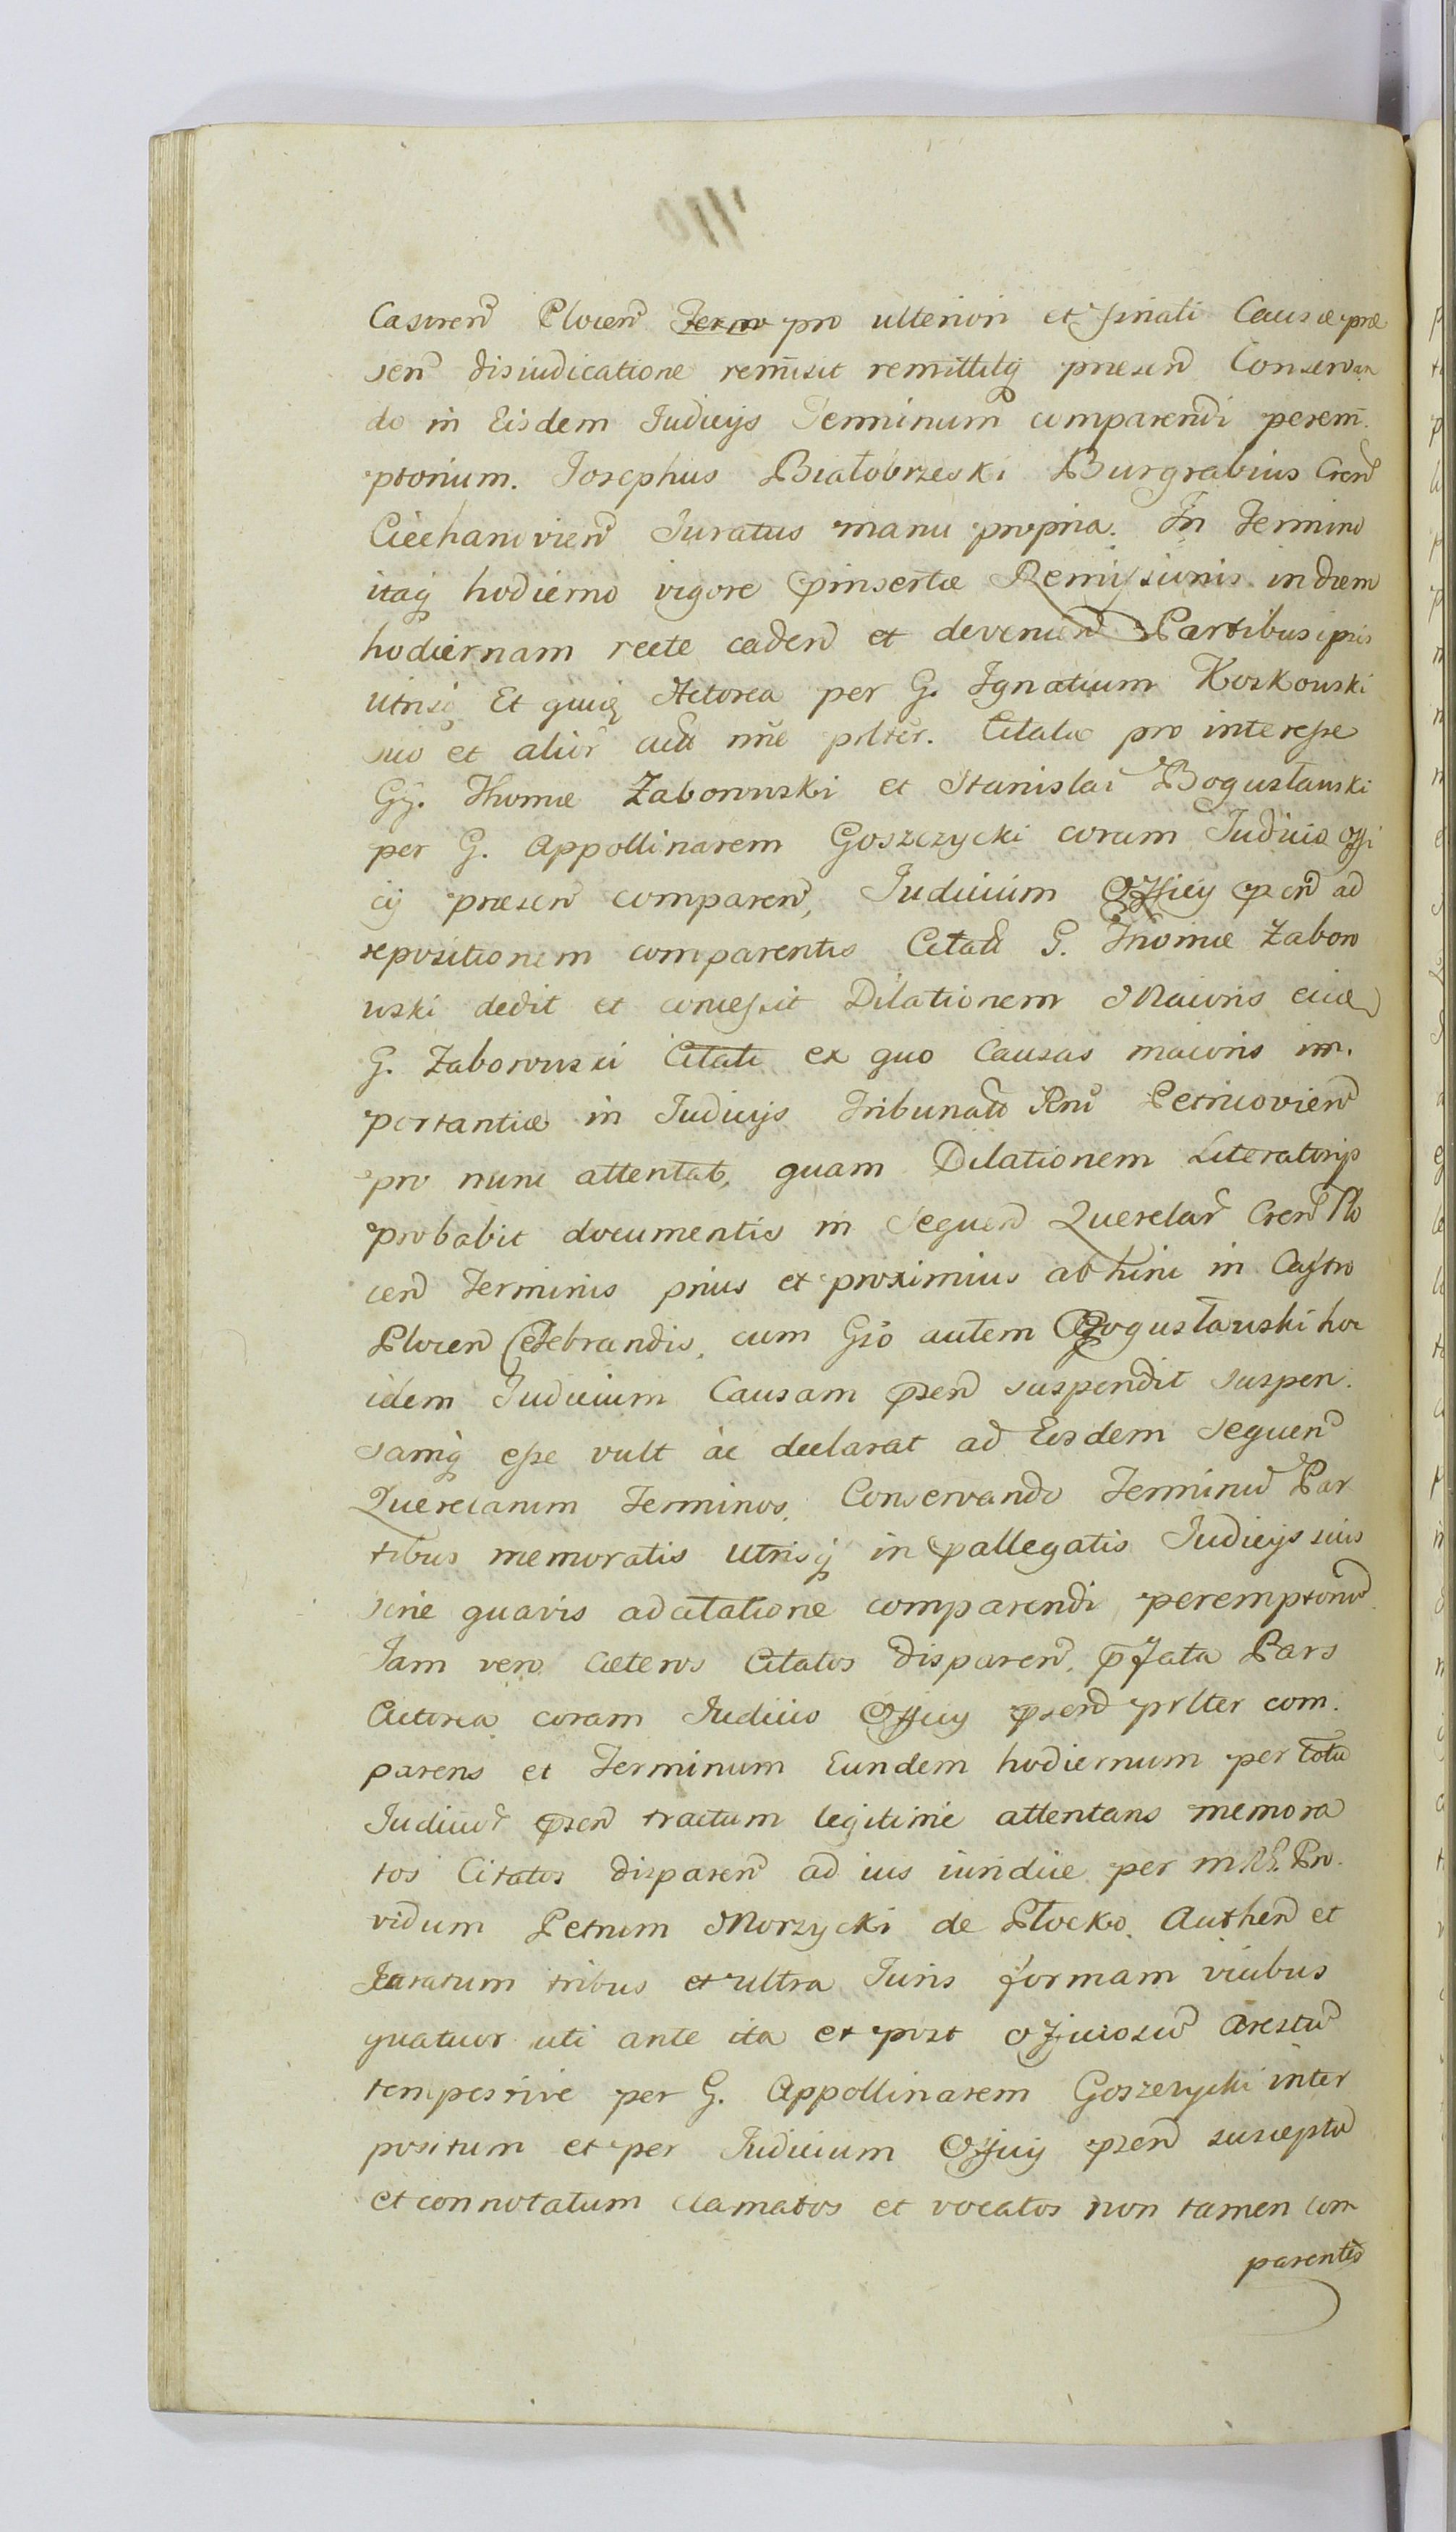 Castren Plocen pro ulteriori et finali Causæ præ
sen disiudicatione remisit remittitq præsen Conservan
do in Eisdem Iudicijs Terminum comparendi perem
ptorium. Josephus Białobrzeski Burgrabius Cren
Ciechanovien Juratus manu propria. In Termino
itaq hodierno vigore pinsertæ Remissionis in diem
hodiernam recte caden et devenien Partibus ipsis
Utrisq Et quidem Actorea per G. Ignatium Koskowski
suo et alior nne prlter. Citatæ pro interesse
GG. Thomæ Zaborowski et Stanislai Bogusławski
per G. Appollinarem Goszczycki coram Iudicio offi
cij præsen comparen, Iudicium Officij psen ad
repositionem comparentis Citati G. Thomæ Zaboro
wski dedit et concessit Dilationem Maioris eidem
G. Zaborowski Citati ex quo Causas maioris im.
portantiæ in Iudicijs Tribunalis Rni Petricovien
pro nunc attentat, quam Dilationem Literatorijs
probabit documentis in Sequen Querelar Cren Plo
cen Terminis prius et proximius ab hinc in Castro
Plocen Celebrandis, cum Gso autem Bogusławski hoc
idem Iudicium Causam psen suspendit suspen.
samq esse vult ac declarat ad Eosdem Sequen
Querelarum Terminos, Conservando Terminu Par
tibus memoratis Utrisq in pallegatis Iudicijs suis
sine quavis adcitatione comparendi peremptoriu
Iam vero Cæteros Citatos disparen, pfata Pars
Actorea coram Iudicio Officij psen prlter com.
parens et Terminum Eundem hodiernum per totu
Iudicior psen tractum legitime attentans memora
tos Citatos disparen ad ius iuridice per Mlem Pro.
vidum Petrum Morzycki de Płocko Authen et
Juratum tribus et ultra Iuris formam vicibus
quatuor uti ante ita et post officiosu Arestu
tempestive per G. Appollinarem Goszczycki inter
positum et per Iudicium Officij psen susceptu
et connotatum clamatos et vocatos non tamen com
parentes